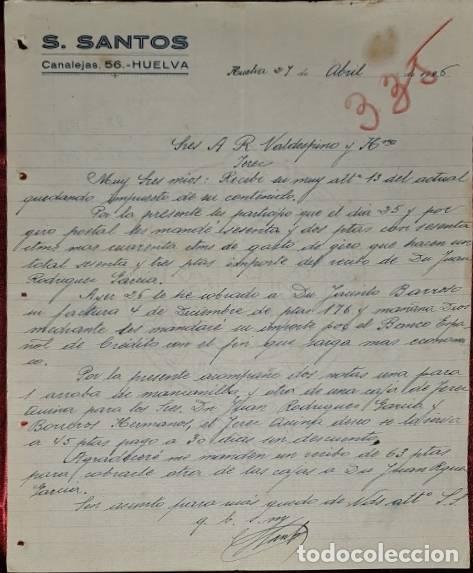 S. SANTOS
Canalejas, 56.-HUELVA
Huelva 27 de Abril de
335
Sres A. R. Valdespino y Hno
Jerez
Muy Sres mios: Recibi su muy attª 13 del actual
quedando impuesto de su contenido.
Por la presente les participo que el dia 25 y por
giro postal les mande sesenta y dos ptas con sesenta
ctms mas cuarenta ctms de gasto de giro que hacen un
total sesenta y tres ptas importe del recibo de Dn Juan
Rodriguez Garcia.
Ayer 26 le he cobrado a Dn Jacinto Barroso
su factura 4 de Diciembre de ptas 176 y mañana Dios
mediante les mandaré su importe por el Banco Espa
ñol de Crédito con el fin que salga mas economi
co.
Por la presente acompaño dos notas una para
1 arroba de manzanilla y otra de una caja de Jerez
Quina para los Sres. Dn Juan Rodriguez Garcia y
Borrero Hermanos, el Jerez Quina deseo se la sirva
a 45 ptas pago a 30 dias sin descuento.
Agradeceré me manden un recibo de 63 ptas
para cobrarle otra de las cajas a Dn Juan
Garcia.
Sin asunto para más quedo de Vds attº S.S.
q. b. s. m
todocoleccion